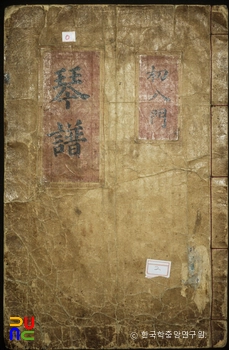 琴譜
初入門
ⓒ 한국학중앙연구원